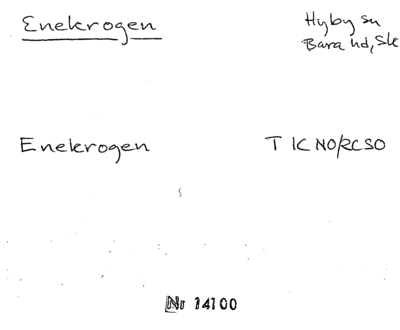 Enekrogen
Hyby sn
Bara hd, Sk
Enekrogen
T 1C NO/2C SO
Nr 14100